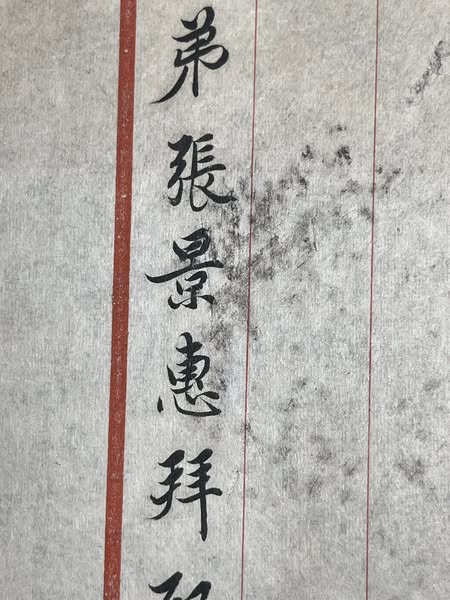 弟張景惠拜